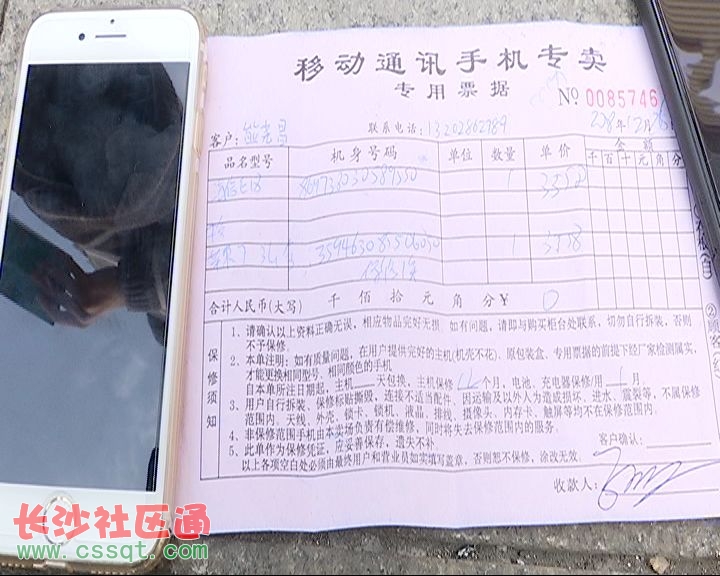 移动通讯手机专卖
专用票据
№ 0085746
客户: 联系电话: 13202862789
品名型号 机身号码 单位 数量 单价 金额
千 百 十 元 角 分
1 3558
1 3558
合计人民币(大写) 千 佰 拾 元 角 分 ¥ 0
保修须知
1、请确认以上资料正确无误，相应物品完好无损 如有问题，请即与购买柜台处联系，切勿自行拆装，否则
不予保修．
2、本单注明：如有质量问题，在用户提供完好的主机(机壳不花)、原包装盒、专用票据的前提下经厂家检测属实，
才能更换相同型号、相同颜色的手机
自本单所注日期起，主机 天包换，主机保修 12 个月，电池、充电器保修/用 1 月
3、用户自行拆装、保修标贴撕毁，连接不适当配件、因运输及以外人为造或损坏、进水、震裂等，不属保修
范围内．天线、外壳、锁卡、锁机、液晶、排线、摄像头、内存卡、触屏等均不在保修范围内．
4、非保修范围手机由本卖场负责有偿维修，同时将失去保修范围内的服务．
5、此单作为保修凭证，应妥善保存，遗失不补
以上各项空白处必须由最终用户和营业员如实填写盖章，否则恕不保修，涂改无效．
客户确认：
收款人：
长沙社区通
www.cssqt.com